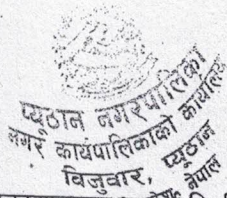 प्यूठान नगरपालिका
नगर कार्यपालिकाको कार्यालय
विजुवार, प्यूठान
नेपाल